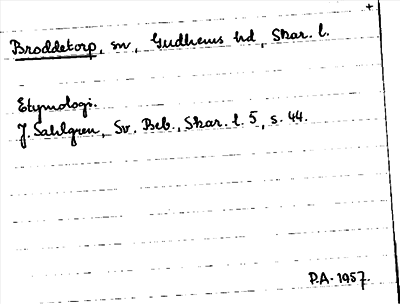 +
Broddetorp, sn, Gudhems hd, Skar. l.
Etymologi.
J. Sahlgren, Sv. Beb., Skar. l. 5, s. 44.
P.A. 1957.